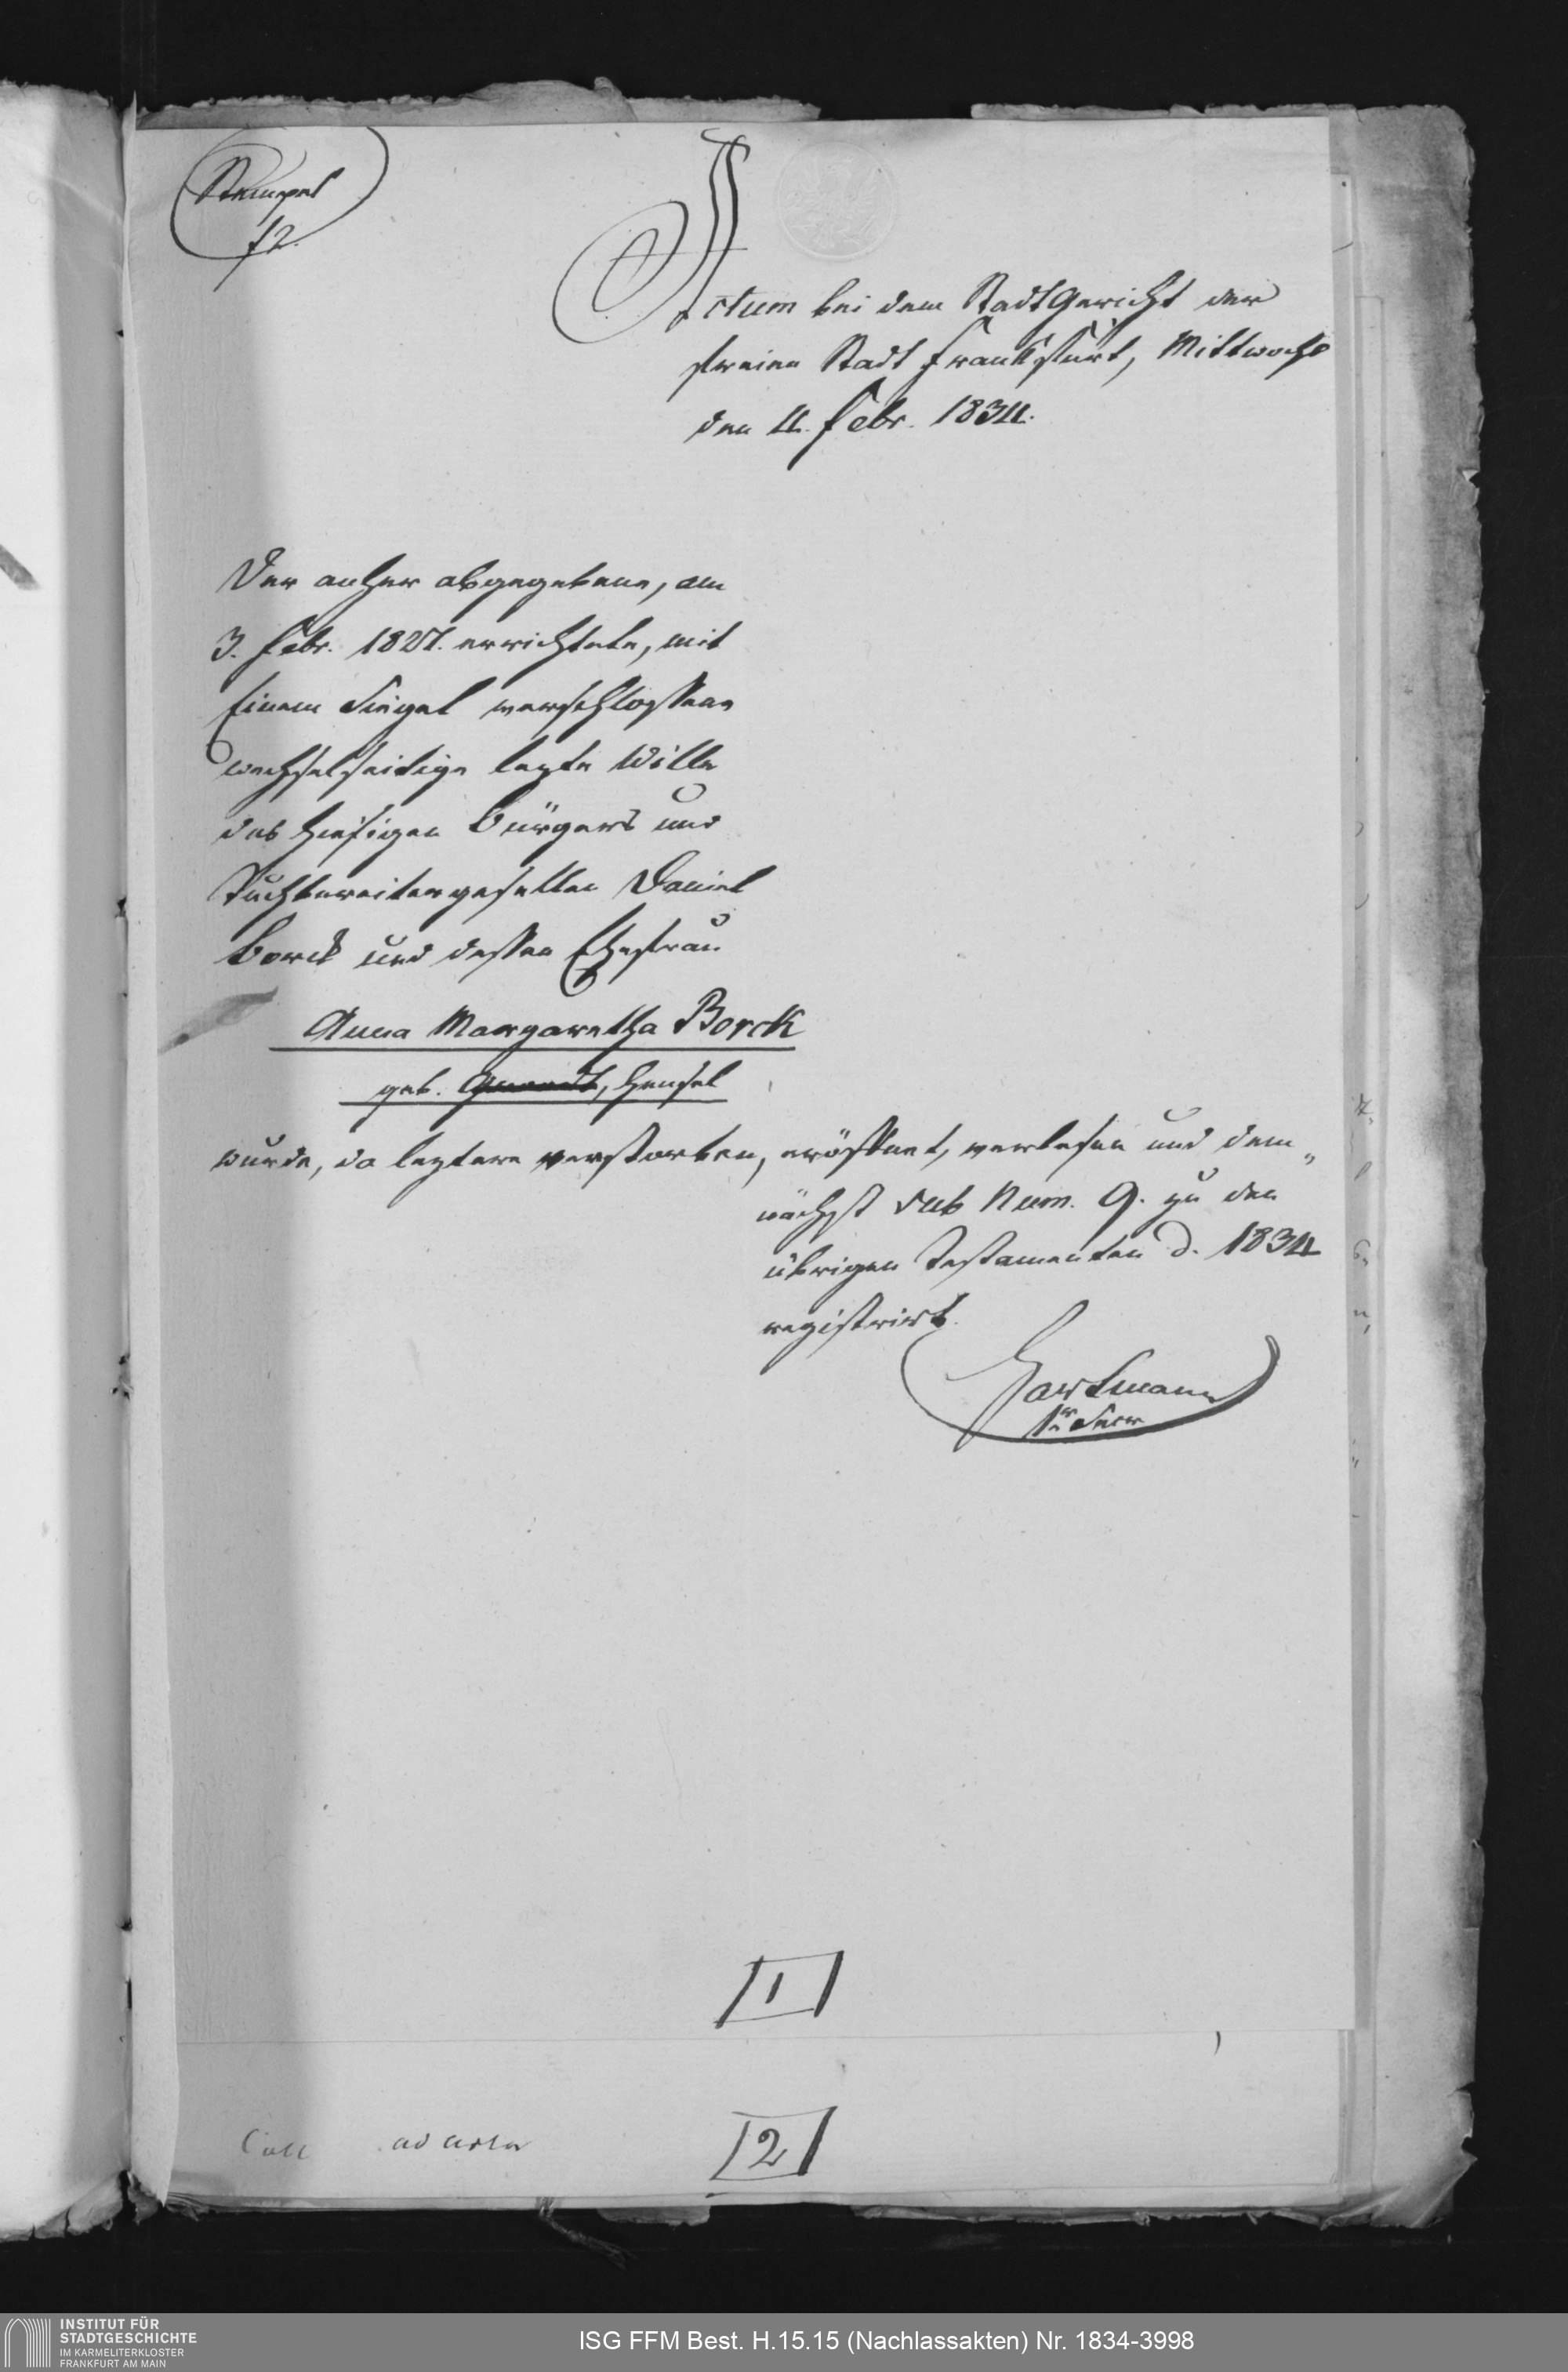 Stempel
f 2.
Actum bei dem Stadt Gericht der
freien Stadt Frankfurt, Mittwochs
den 4. Febr. 1834.
Der anher abgegebene, am
3. Febr. 1827. errichtete, mit
Einem Siegel verschlossene
wechselseitige lezte Wille
des hiesigen Bürgers und
Tuchbereitergesellen Daniel
Borck und dessen Ehefrau
Anna Margaretha Borck
geb. Hensel
wurde, da leztere verstorben, eröffnet, verlesen und dem„
nächst sub Num. 9. zu den
übrigen Testamenten d. 1834
registrirt.
Hartmann
1r Secr
1
2
INSTITUT FÜR
STADTGESCHICHTE
IM KARMELITERKLOSTER
FRANKFURT AM MAIN
ISG FFM Best. H.15.15 (Nachlassakten) Nr. 1834-3998